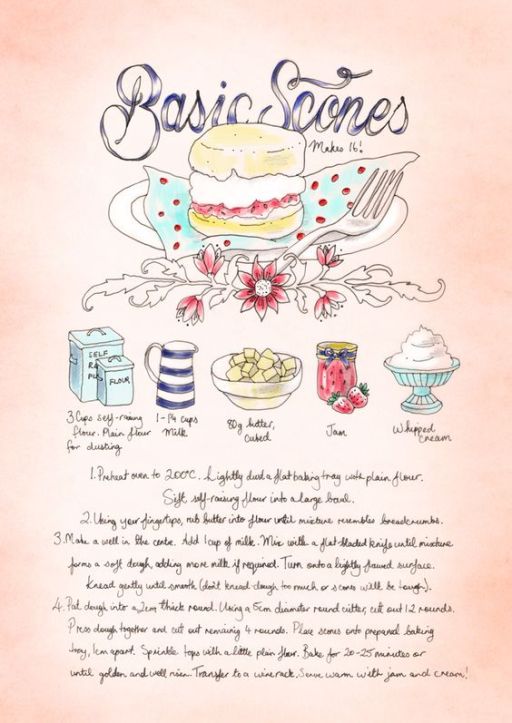 Basic Scones
Makes 16!
SELF
RA
PL
FLOUR
3 Cups self-raising
flour. Plain flour
for dusting
1-1¼ cups
Milk
80g butter,
cubed
Jam
Whipped
cream
1. Preheat oven to 200°C. Lightly dust a flat baking tray with plain flour.
Sift self-raising flour into a large bowl.
2. Using your fingertips, rub butter into flour until mixture resembles breadcrumbs.
3. Make a well in the centre. Add 1 cup of milk. Mix with a flat-bladed knife until mixture
forms a soft dough, adding more milk if required. Turn onto a lightly floured surface.
Knead gently until smooth (don't knead dough too much or scones will be tough).
4. Pat dough into a 2cm thick round. Using a 5cm diameter round cutter, cut out 12 rounds.
Press dough together and cut out remaining 4 rounds. Place scones onto prepared baking
tray, 1cm apart. Sprinkle tops with a little plain flour. Bake for 20-25 minutes or
until golden and well risen. Transfer to a wire rack. Serve warm with jam and cream!